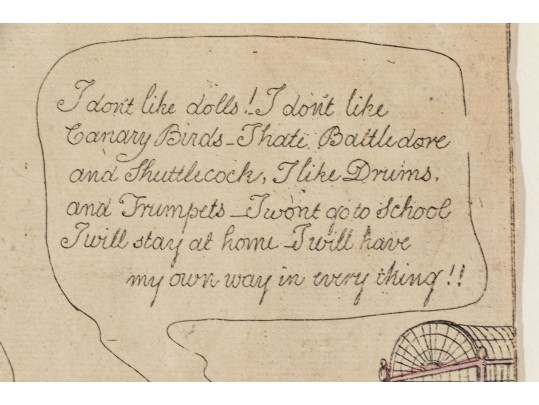 I don't like dolls! I don't like
Canary Birds - I hate Battledore
and Shuttlecock, I like Drums,
and Trumpets - I won't go to School
I will stay at home - I will have
my own way in every thing!!